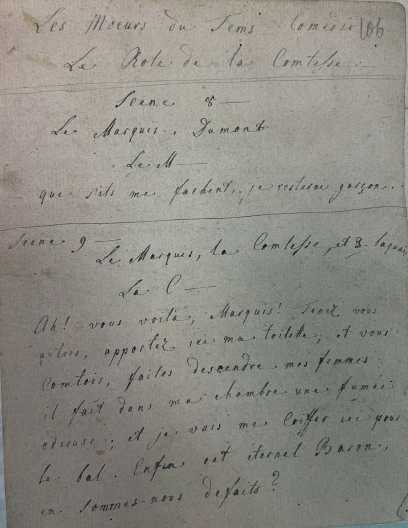 Les Moeurs du Tems Comedie 106
Le Role de la Comtesse.
Scene 8 —
Le Marquis, Dumont
Le M —
que s'ils me fachent, je resterai garçon.
Scene 9 —
Le Marquis, la Comtesse, et 3 laquais
La C —
Ah! vous voilà, Marquis! Tenez vous
autres, apportez ici ma toilette, et vous
Comtois, faites descendre mes femmes.
il fait dans ma chambre une fumée
odieuse; et je vais me coiffer ici pour
le bal. Enfin cet eternel Baron,
en sommes-nous defaits?